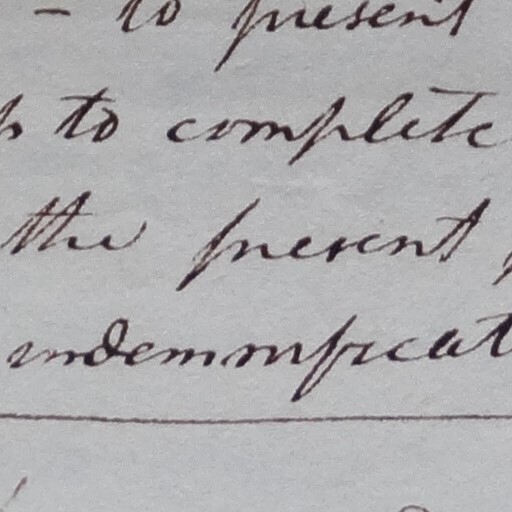 - to present
to complete
the present
indemnificat